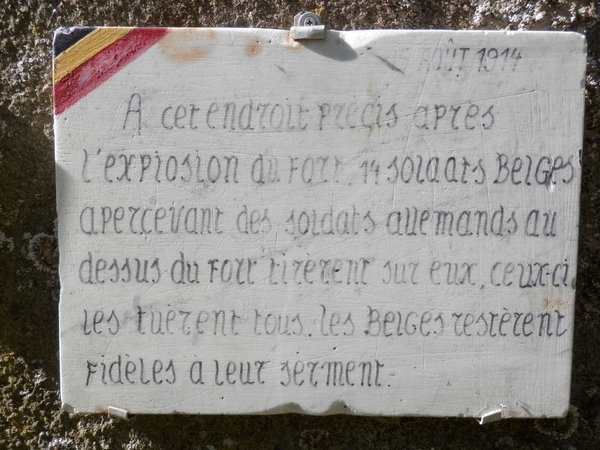 AOÛT 1914
A cet endroit précis après
l'explosion du Fort, 14 soldats Belges
apercevant des soldats allemands au
dessus du Fort tirerent sur eux, ceux-ci
les tuèrent tous, les Belges restèrent
Fidèles à leur serment.